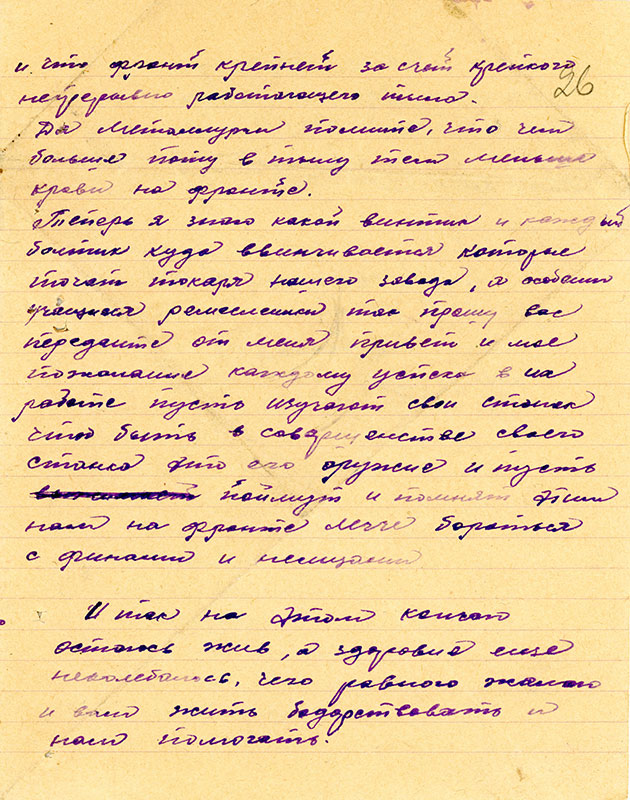 и что фронт крепнет за счет крепкого
26
непрерывно работающего тыла.
Да Металлурги помните, что чем
больше поту в тылу тем меньше
крови на фронте.
Теперь я знаю какой винтик и каждый
болтик куда ввинчивается которые
точат токаря нашего завода, а особенно
учащиеся ремесленики так прошу вас
передайте от меня привет и мое
пожелание каждому успеха в их
работе пусть изучают свой станок
чтоб быть в совершенстве своего
станка это его оружие и пусть
поймут и помнят этим
нам на фронте легче бороться
с финами и немцами
И так на этом кончаю
остаюсь жив, а здоровие еще
неколебалось, чего равного желаю
и вам жить бодрствовать и
нам помогать.